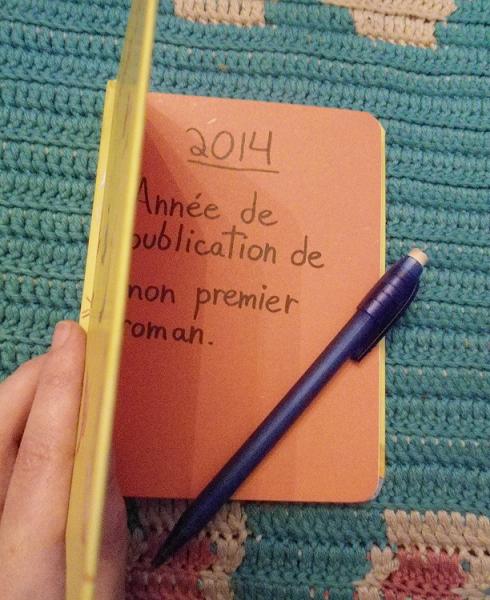 2014
Année de
publication de
mon premier
roman.